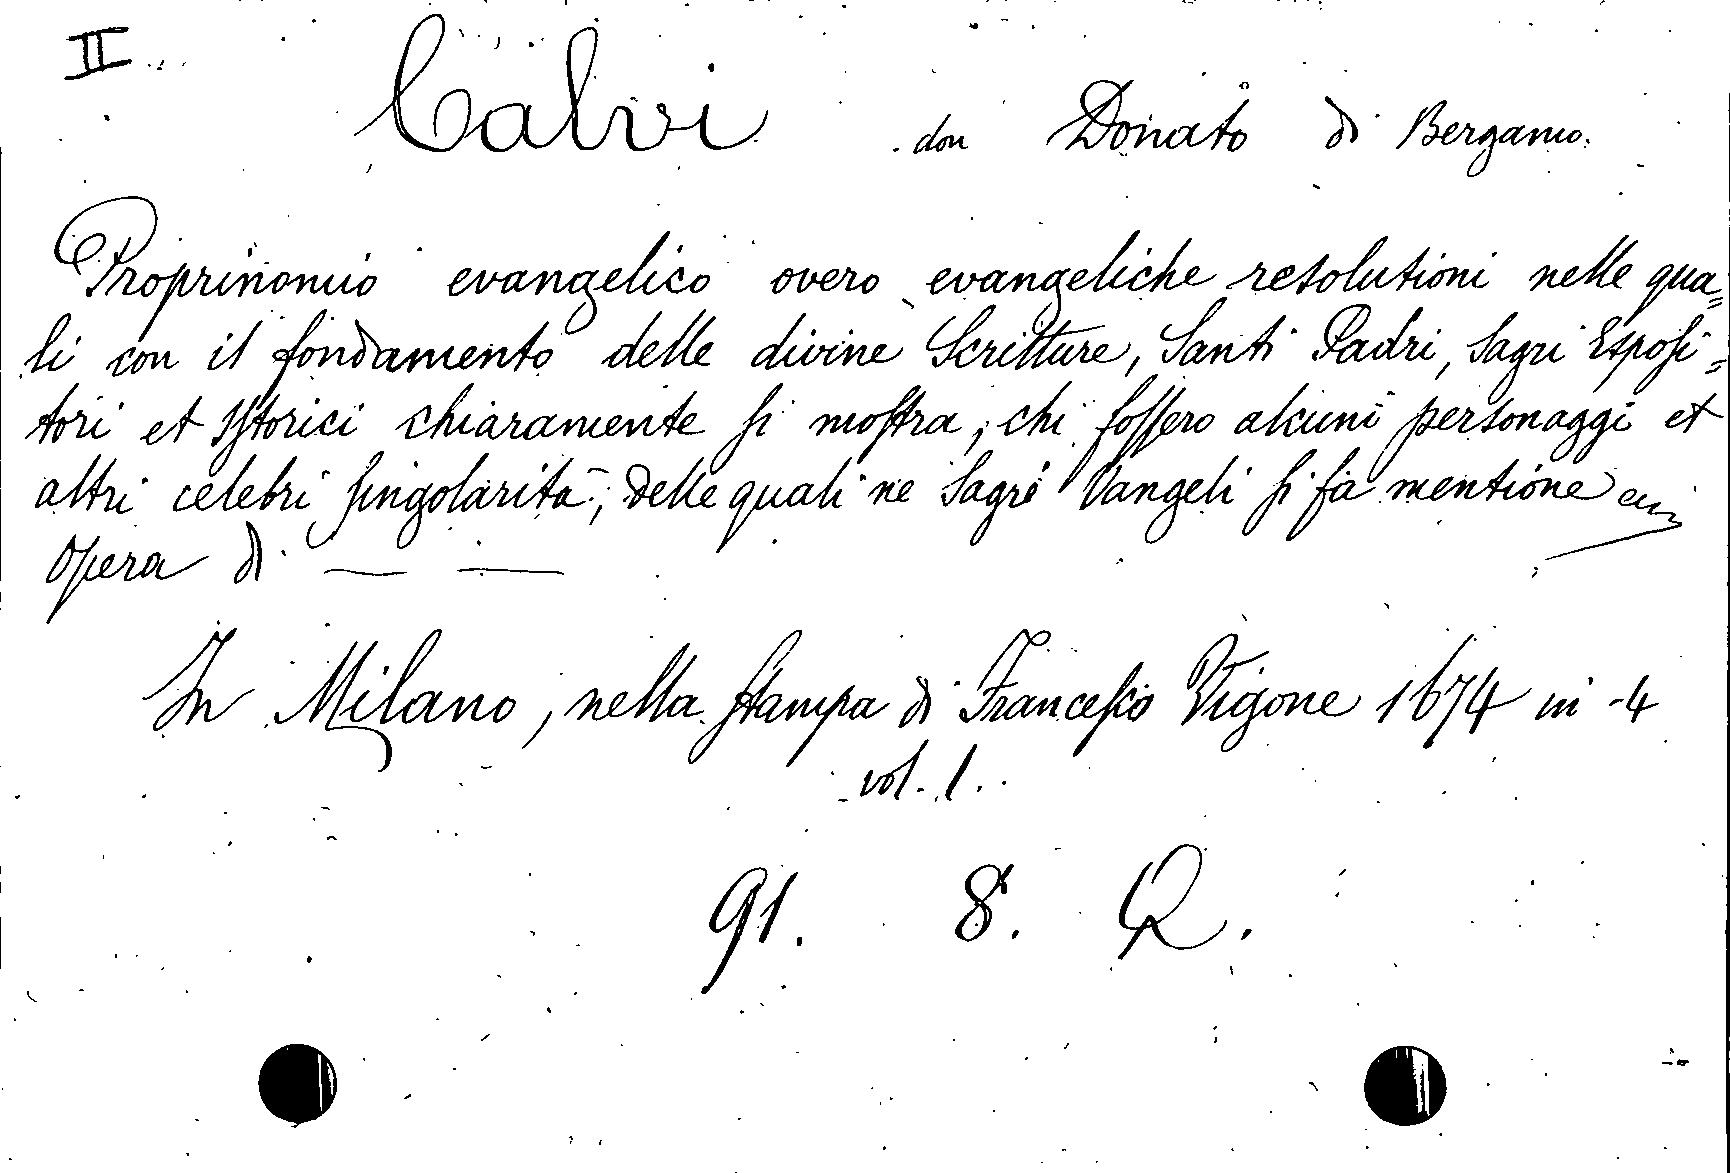 II
Calvi don Donato di Bergamo.
Proprinomio evangelico overo evangeliche resolutioni nelle qua=
li con il fondamento delle divine Scritture, Santi Padri, Sagri Esposi=
tori et Istorici chiaramente si mostra, chi fossero alcuni personaggi et
altri celebri singolarità, delle quali ne Sagri Vangeli si fà mentione
opera di — —
In Milano, nella stampa di Francesco Vigone 1674 in -4
vol. 1.
91. 8. Q.